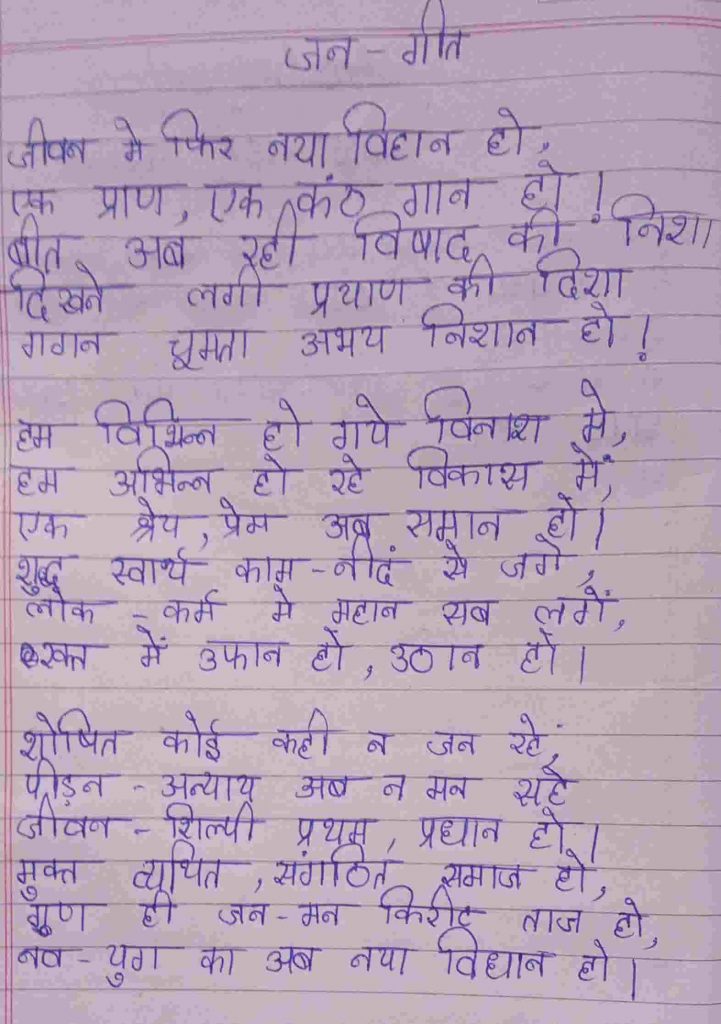 जन - गीत
जीवन मे फिर नया विहान हो,
एक प्राण, एक कंठ गान हो!
बीत अब रही विषाद की निशा
दिखने लगी प्रयाण की दिशा
गगन चूमता अभय निशान हो!
हम विभिन्न हो गये विनाश मे,
हम अभिन्न हो रहे विकास में,
एक श्रेय, प्रेम अब समान हो।
शुद्ध स्वार्थ काम - नीदं से जगे,
लोक - कर्म मे महान सब लगें,
रक्त में उफान हो, उठान हो।
शोषित कोई कही न जन रहे,
पीड़न - अन्याय अब न मन सहे
जीवन - शिल्पी प्रथम, प्रधान हो।
मुक्त व्यथित, संगठित समाज हो,
गुण ही जन - मन किरीट ताज हो,
नव - युग का अब नया विधान हो।